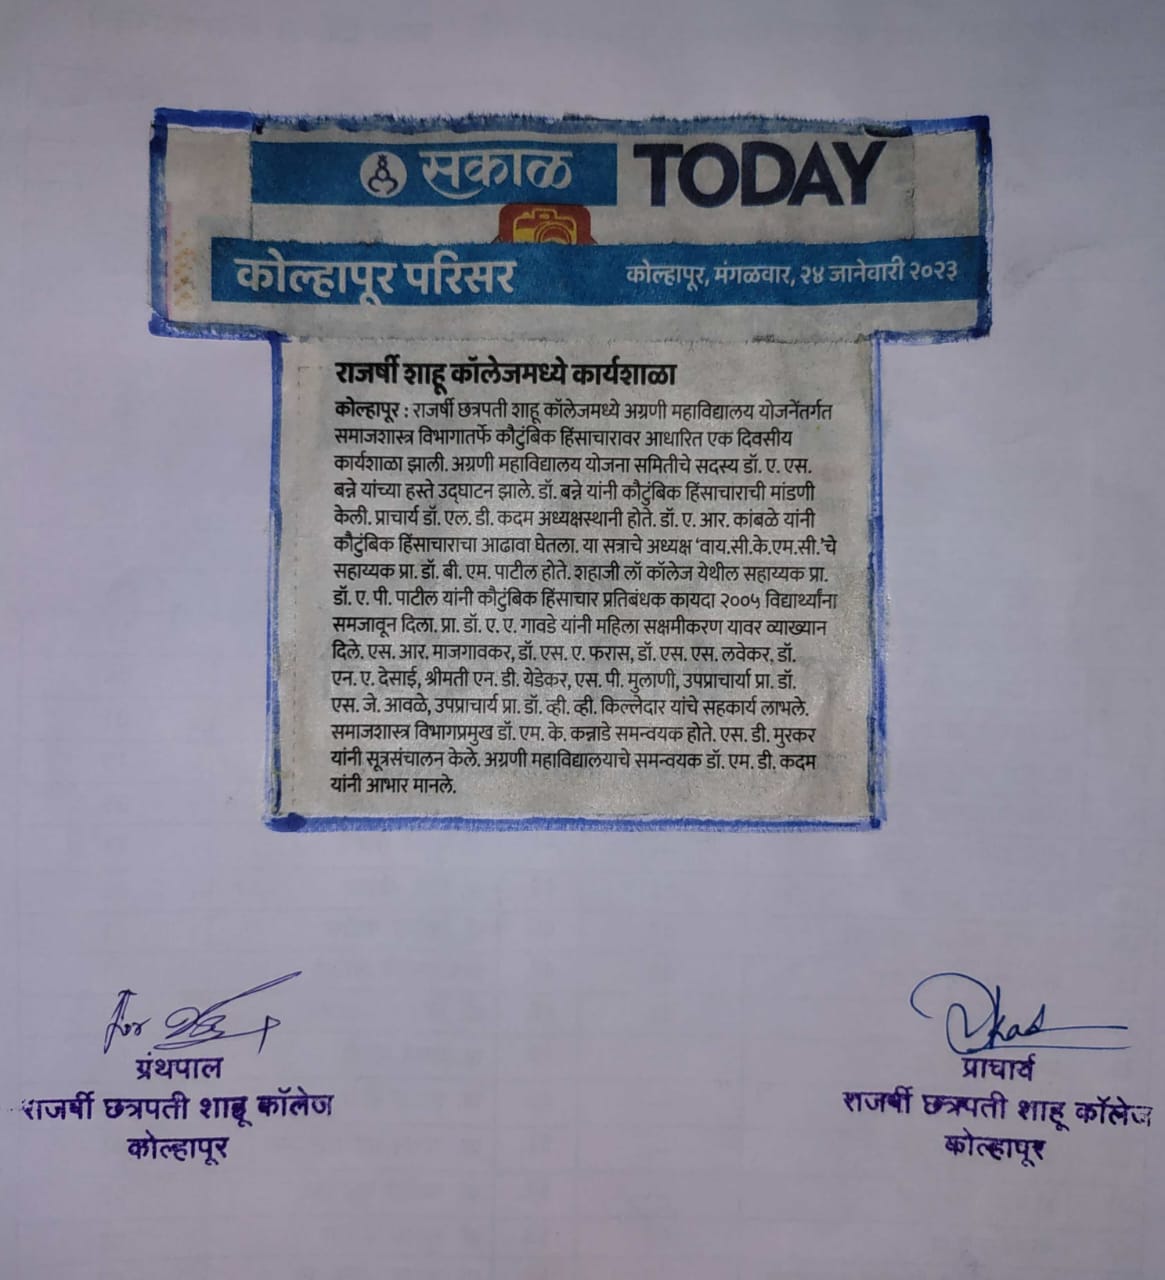 सकाळ TODAY
कोल्हापूर परिसर कोल्हापूर, मंगळवार, २४ जानेवारी २०२३
राजर्षी शाहू कॉलेजमध्ये कार्यशाळा
कोल्हापूर : राजर्षी छत्रपती शाहू कॉलेजमध्ये अग्रणी महाविद्यालय योजनेंतर्गत
समाजशास्त्र विभागातर्फे कौटुंबिक हिंसाचारावर आधारित एक दिवसीय
कार्यशाळा झाली. अग्रणी महाविद्यालय योजना समितीचे सदस्य डॉ. ए. एस.
बन्ने यांच्या हस्ते उद्‌घाटन झाले. डॉ. बन्ने यांनी कौटुंबिक हिंसाचाराची मांडणी
केली. प्राचार्य डॉ. एल. डी. कदम अध्यक्षस्थानी होते. डॉ. ए. आर. कांबळे यांनी
कौटुंबिक हिंसाचाराचा आढावा घेतला. या सत्राचे अध्यक्ष ‘वाय.सी.के.एम.सी.’चे
सहाय्यक प्रा. डॉ. बी. एम. पाटील होते. शहाजी लॉ कॉलेज येथील सहाय्यक प्रा.
डॉ. ए. पी. पाटील यांनी कौटुंबिक हिंसाचार प्रतिबंधक कायदा २००५ विद्यार्थ्यांना
समजावून दिला. प्रा. डॉ. ए. ए. गावडे यांनी महिला सक्षमीकरण यावर व्याख्यान
दिले. एस. आर. माजगावकर, डॉ. एस. ए. फरास, डॉ. एस. एस. लवेकर, डॉ.
एन. ए. देसाई, श्रीमती एन. डी. येडेकर, एस. पी. मुलाणी, उपप्राचार्या प्रा. डॉ.
एस. जे. आवळे, उपप्राचार्य प्रा. डॉ. व्ही. व्ही. किल्लेदार यांचे सहकार्य लाभले.
समाजशास्त्र विभागप्रमुख डॉ. एम. के. कन्नाडे समन्वयक होते. एस. डी. मुरकर
यांनी सूत्रसंचालन केले. अग्रणी महाविद्यालयाचे समन्वयक डॉ. एम. डी. कदम
यांनी आभार मानले.
for
ग्रंथपाल
राजर्षी छत्रपती शाहू कॉलेज
कोल्हापूर
प्राचार्य
राजर्षी छत्रपती शाहू कॉलेज
कोल्हापूर